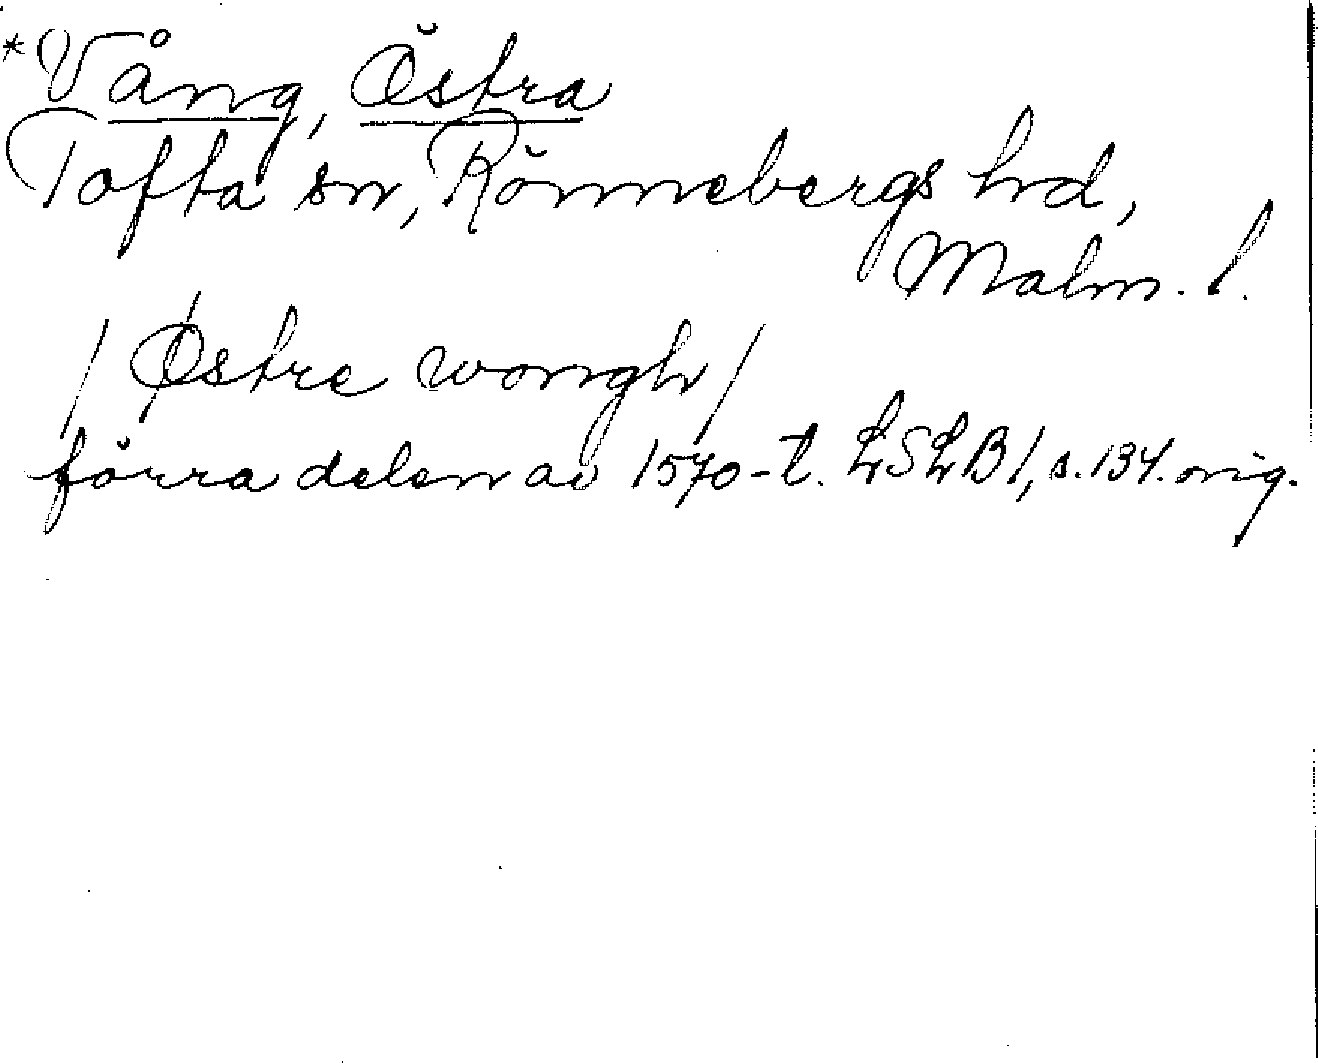 *Vång, Östra
Tofta sn, Rönnebergs hd,
Malm. l.
/Østre wongh/
förra delen av 1570-t. LSLB1, s. 134. orig.